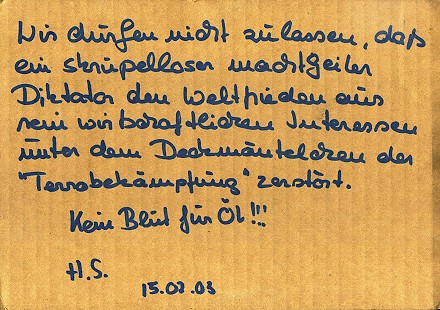 Wir dürfen nicht zulassen, daß
ein skrupelloser machtgeiler
Diktator den Weltfrieden aus
rein wirtschaftlichen Interessen
unter dem Deckmäntelchen der
"Terrorbekämpfung" zerstört.
Kein Blut für Öl!!!
H.S.
15.03.03